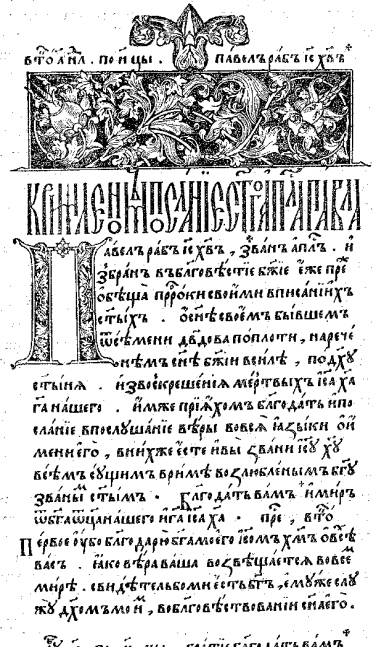 в҃то а҃нл . по н҃цы . павелъ рабъ і҃с х҃въ
к римлѧном посланіе с҃таго ап҃ла павла
Павелъ рабъ і҃с х҃въ , званъ ап҃лъ . и
збранъ въ благовѣстіе б҃жіе еже пре
обѣща пр҃роки своими в писаніихъ
с҃тыхъ . о с҃нѣ своемъ бывшем
ѿ сѣмени дв҃дова по плоти , нарече
онѣмъ с҃нѣ б҃жіи в силѣ , по д҃ху
с҃тыня . из воскрешенія мертвыхъ і҃са х҃а
г҃а нашего . имже пріяхомъ благодать и по
сланіе в послушаніе вѣры во всѧ ѧзыки о и
мени его , в нихже есте и вы звани і҃су х҃у
всѣмъ сущимъ в римѣ возлюбленымъ б҃гу
званы с҃тымъ . Благодать вамъ и миръ
ѿ б҃га ѿц҃а нашего и г҃а і҃са х҃а . пре , в҃то
Первое оубо благодарю б҃га моего і҃сомъ х҃мъ о всѣ
васъ . ꙗко вѣра ваша возвѣщается во всем
мирѣ . свидѣтель бо ми есть б҃гъ , емуже слу
жу д҃хомъ мои , во благовѣствованіи с҃на его .
благодать вамъ